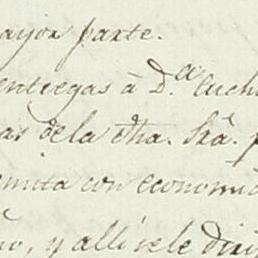 ayor parte.
entregas à D.ª Cuch
as de la dha. Srâ. p
emita con economia
no, y allí se le diri